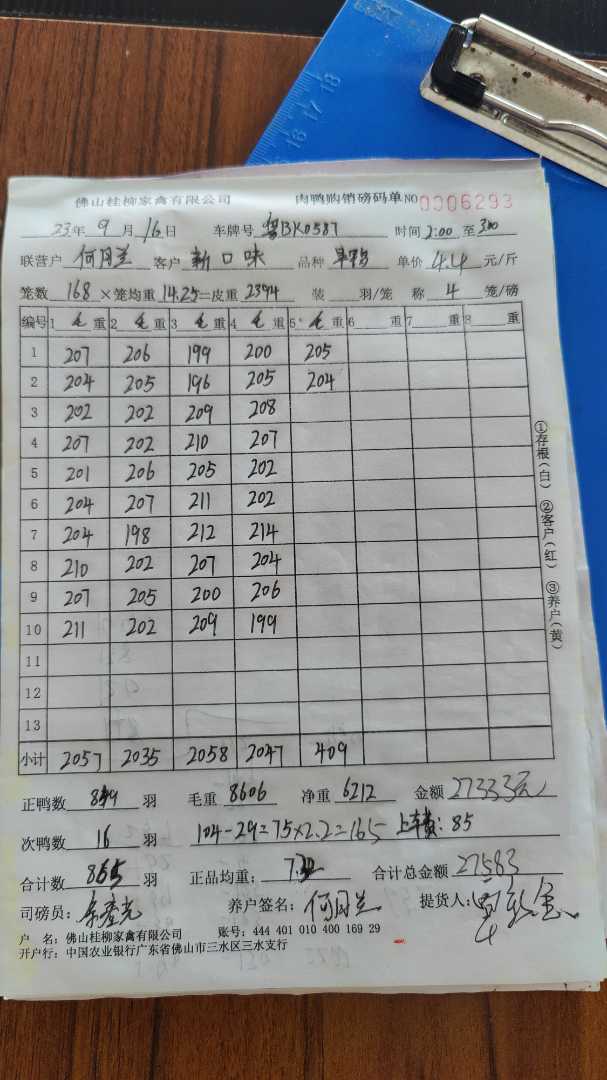 佛山桂柳家禽有限公司 肉鸭购销磅码单 NO 0006293
23年 9月 16日 车牌号 粤BK0587 时间 2:00 至 3:00
联营户 何月兰 客户 新口味 品种 单价 4.4 元/斤
笼数 168 ×笼均重 14.25=皮重 2394 装 羽/笼 称 4 笼/磅
编号 1 毛 重 2 毛 重 3 毛 重 4 毛 重 5 毛 重 6 重 7 重 8 重
1 207 206 199 200 205
2 204 205 196 205 204
3 202 202 209 208
4 207 202 210 207
5 201 206 205 202
6 204 207 211 202
7 204 198 212 214
8 210 202 207 204
9 207 205 200 206
10 211 202 209 199
11
12
13
小计 2057 2035 2058 2047 409
正鸭数 849 羽 毛重 8606 净重 6212 金额 27333元
次鸭数 16 羽 104-29=75×2.2=165 上车费:85
合计数 865 羽 正品均重: 合计总金额 27583
司磅员: 养户签名: 何月兰 提货人:
户 名: 佛山桂柳家禽有限公司 账号: 444 401 010 400 169 29
开户行: 中国农业银行广东省佛山市三水区三水支行
①存根(白) ②客户(红) ③养户(黄)
16 17 18